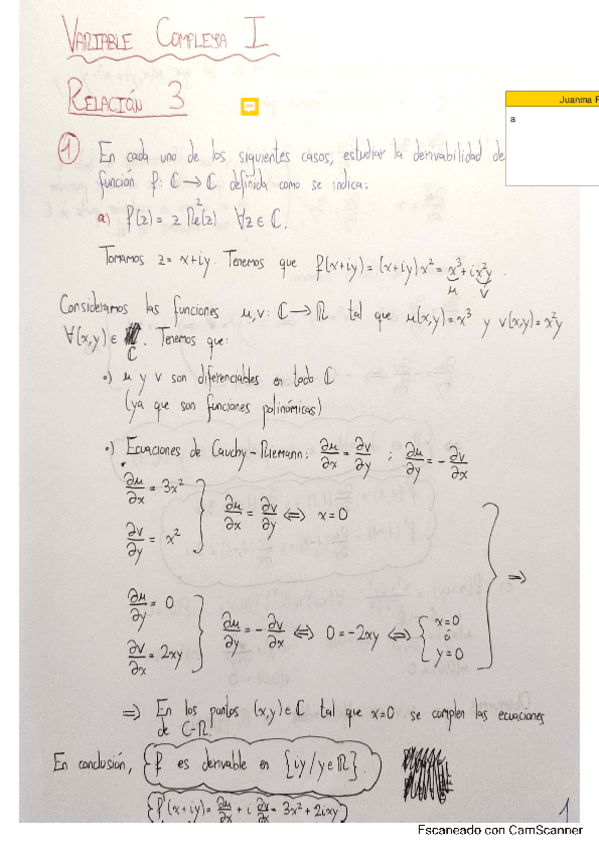 VARIABLE COMPLEJA I
RELACIÓN 3
Juanma F
a
① En cada uno de los siguientes casos, estudiar la derivabilidad de
función f: ℂ → ℂ definida como se indica:
a) f(z) = z Re²(z) ∀z ∈ ℂ.
Tomamos z = x+iy. Tenemos que f(x+iy) = (x+iy) x² = x³ + i x²y.
u v
Consideramos las funciones u, v: ℂ → ℝ tal que u(x,y) = x³ y v(x,y) = x²y
∀(x,y) ∈ ℂ. Tenemos que:
•) u y v son diferenciables en todo ℂ
(ya que son funciones polinómicas)
•) Ecuaciones de Cauchy-Riemann: ∂u/∂x = ∂v/∂y ; ∂u/∂y = -∂v/∂x
∂u/∂x = 3x²
∂u/∂x = ∂v/∂y ⟺ x=0
∂v/∂y = x²
⇒
∂u/∂y = 0
∂u/∂y = -∂v/∂x ⟺ 0 = -2xy ⟺ { x=0 ó y=0
∂v/∂x = 2xy
⇒ En los puntos (x,y) ∈ ℂ tal que x=0 se cumplen las ecuaciones
de C-R.
En conclusión, { f es derivable en {iy / y ∈ ℝ}.
f'(x+iy) = ∂u/∂x + i ∂v/∂x = 3x² + 2ixy
1
Escaneado con CamScanner